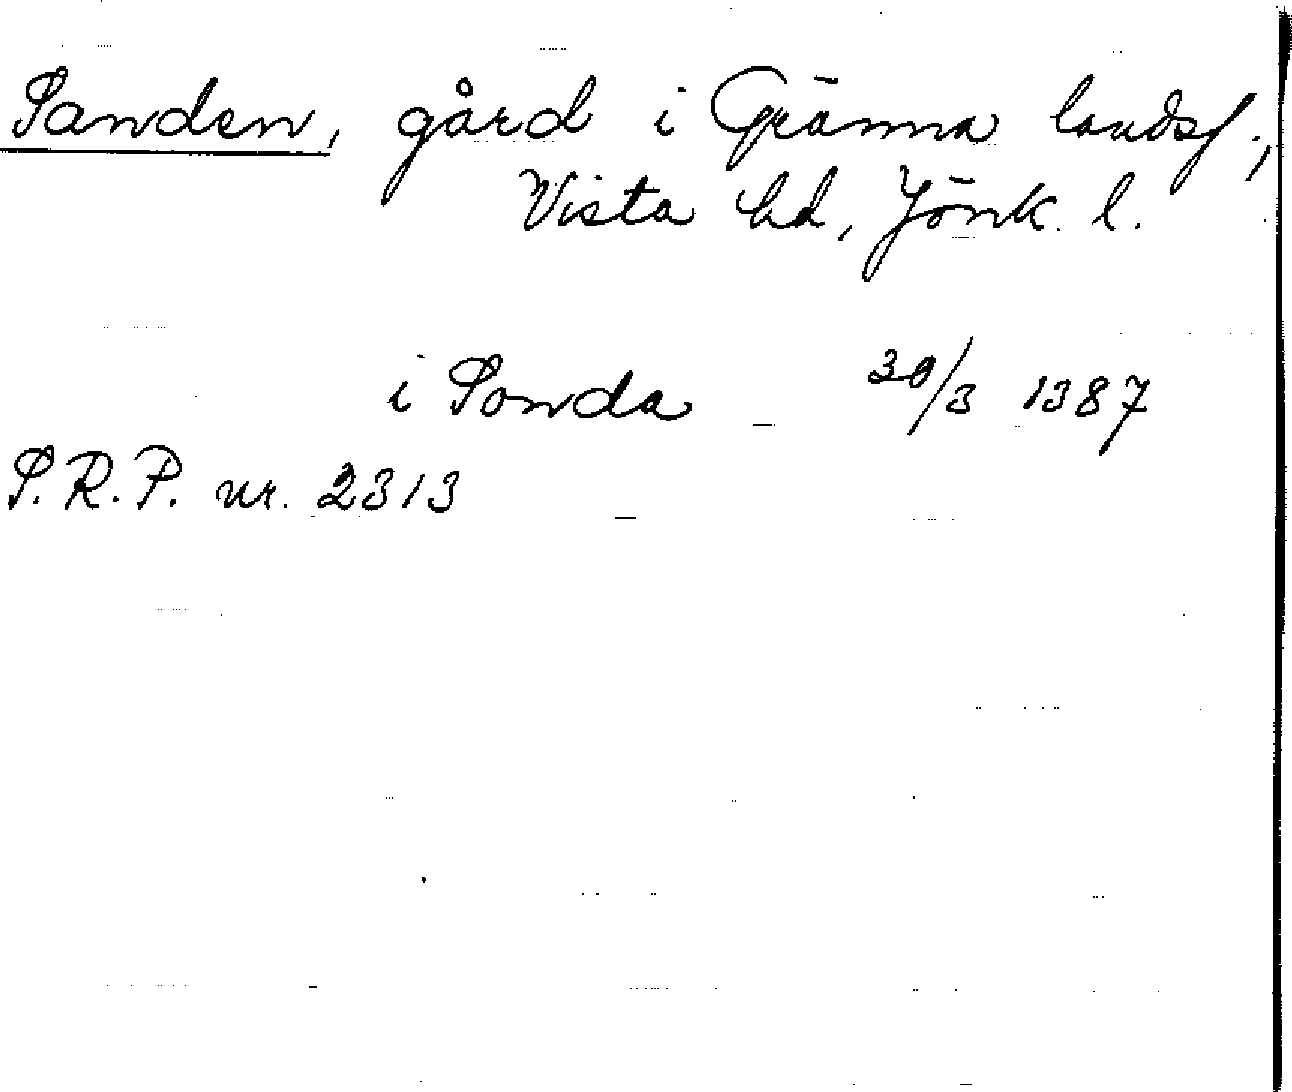 Sanden, gård i Gränna landsf.,
Vista hd, Jönk. l.
i Sonda 30/3 1387
S.R.P. nr. 2313